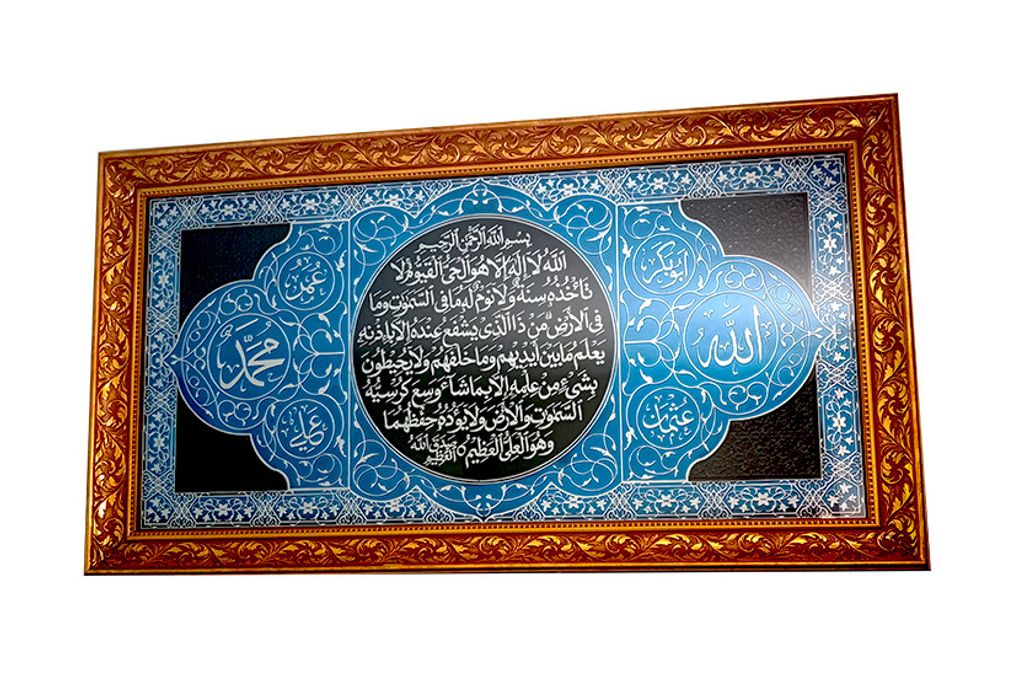 بِسْمِ اللَّهِ الرَّحْمَٰنِ الرَّحِيمِ
اللَّهُ لَا إِلَٰهَ إِلَّا هُوَ الْحَيُّ الْقَيُّومُ لَا
تَأْخُذُهُ سِنَةٌ وَلَا نَوْمٌ لَهُ مَا فِي السَّمَٰوَٰتِ وَمَا
فِي الْأَرْضِ مَنْ ذَا الَّذِي يَشْفَعُ عِنْدَهُ إِلَّا بِإِذْنِهِ
يَعْلَمُ مَا بَيْنَ أَيْدِيهِمْ وَمَا خَلْفَهُمْ وَلَا يُحِيطُونَ
بِشَيْءٍ مِنْ عِلْمِهِ إِلَّا بِمَا شَاءَ وَسِعَ كُرْسِيُّهُ
السَّمَٰوَٰتِ وَالْأَرْضَ وَلَا يَؤُدُهُ حِفْظُهُمَا
وَهُوَ الْعَلِيُّ الْعَظِيمُ صَدَقَ اللَّهُ الْعَظِيمُ
أبو بكر
الله
عثمان
عمر
محمد
علي